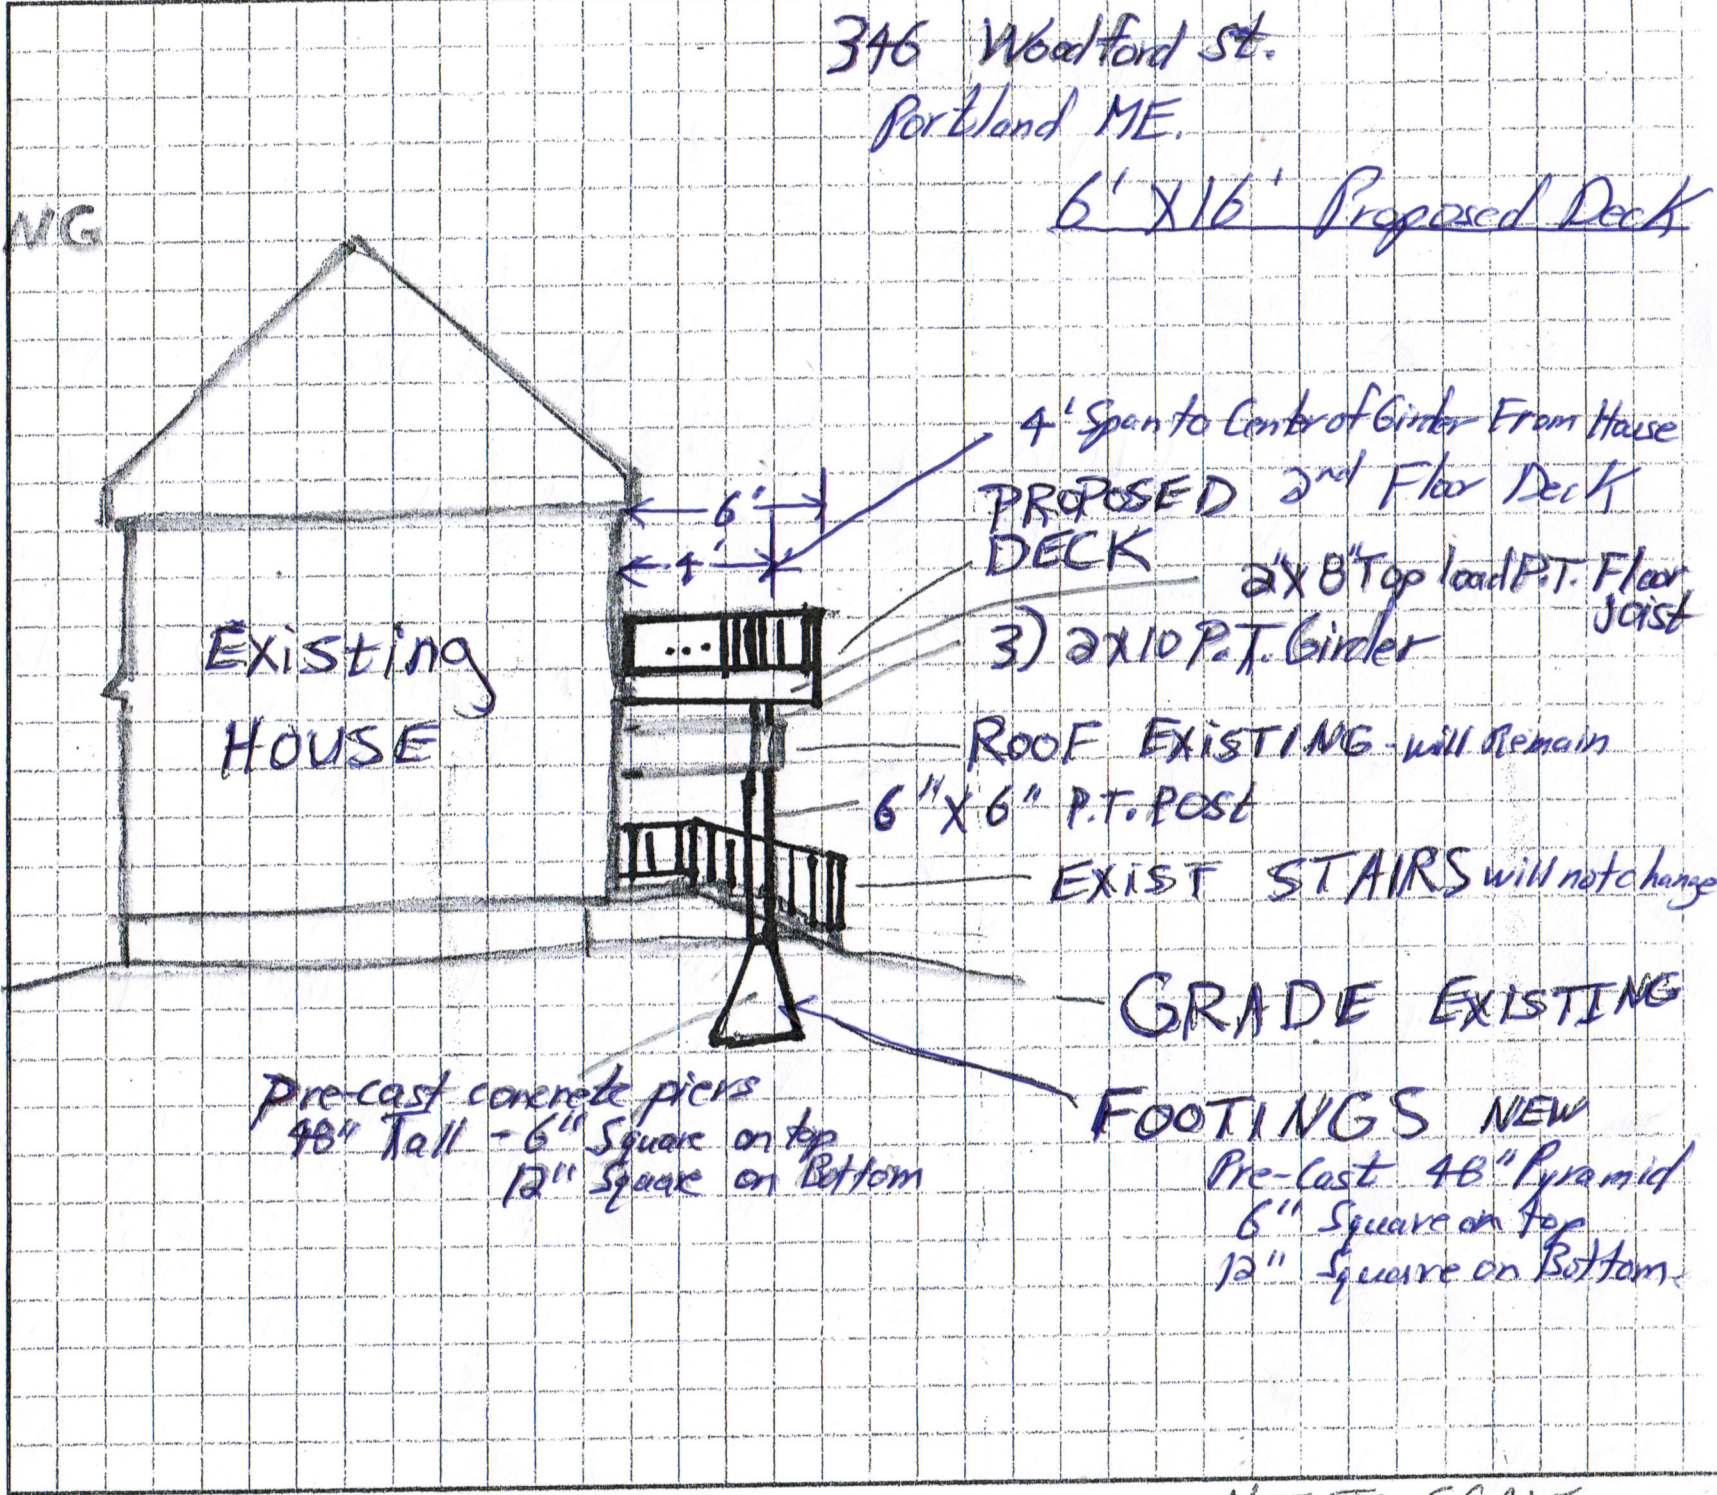 346 Woodford St.
Portland ME.
6' X 16' Proposed Deck
NG
4' Span to Center of Girder From House
PROPOSED 2nd Floor Deck
DECK
6'
4'
2"X8" Top load P.T. Floor
Joist
3) 2X10 P.T. Girder
Existing
HOUSE
ROOF EXISTING - will Remain
6" X 6" P.T. POST
EXIST STAIRS will not change
GRADE EXISTING
Pre-cast concrete piers
48" Tall - 6" Square on top
12" Square on Bottom
FOOTINGS NEW
Pre-Cast 48" Pyramid
6" Square on top
12" Square on Bottom.